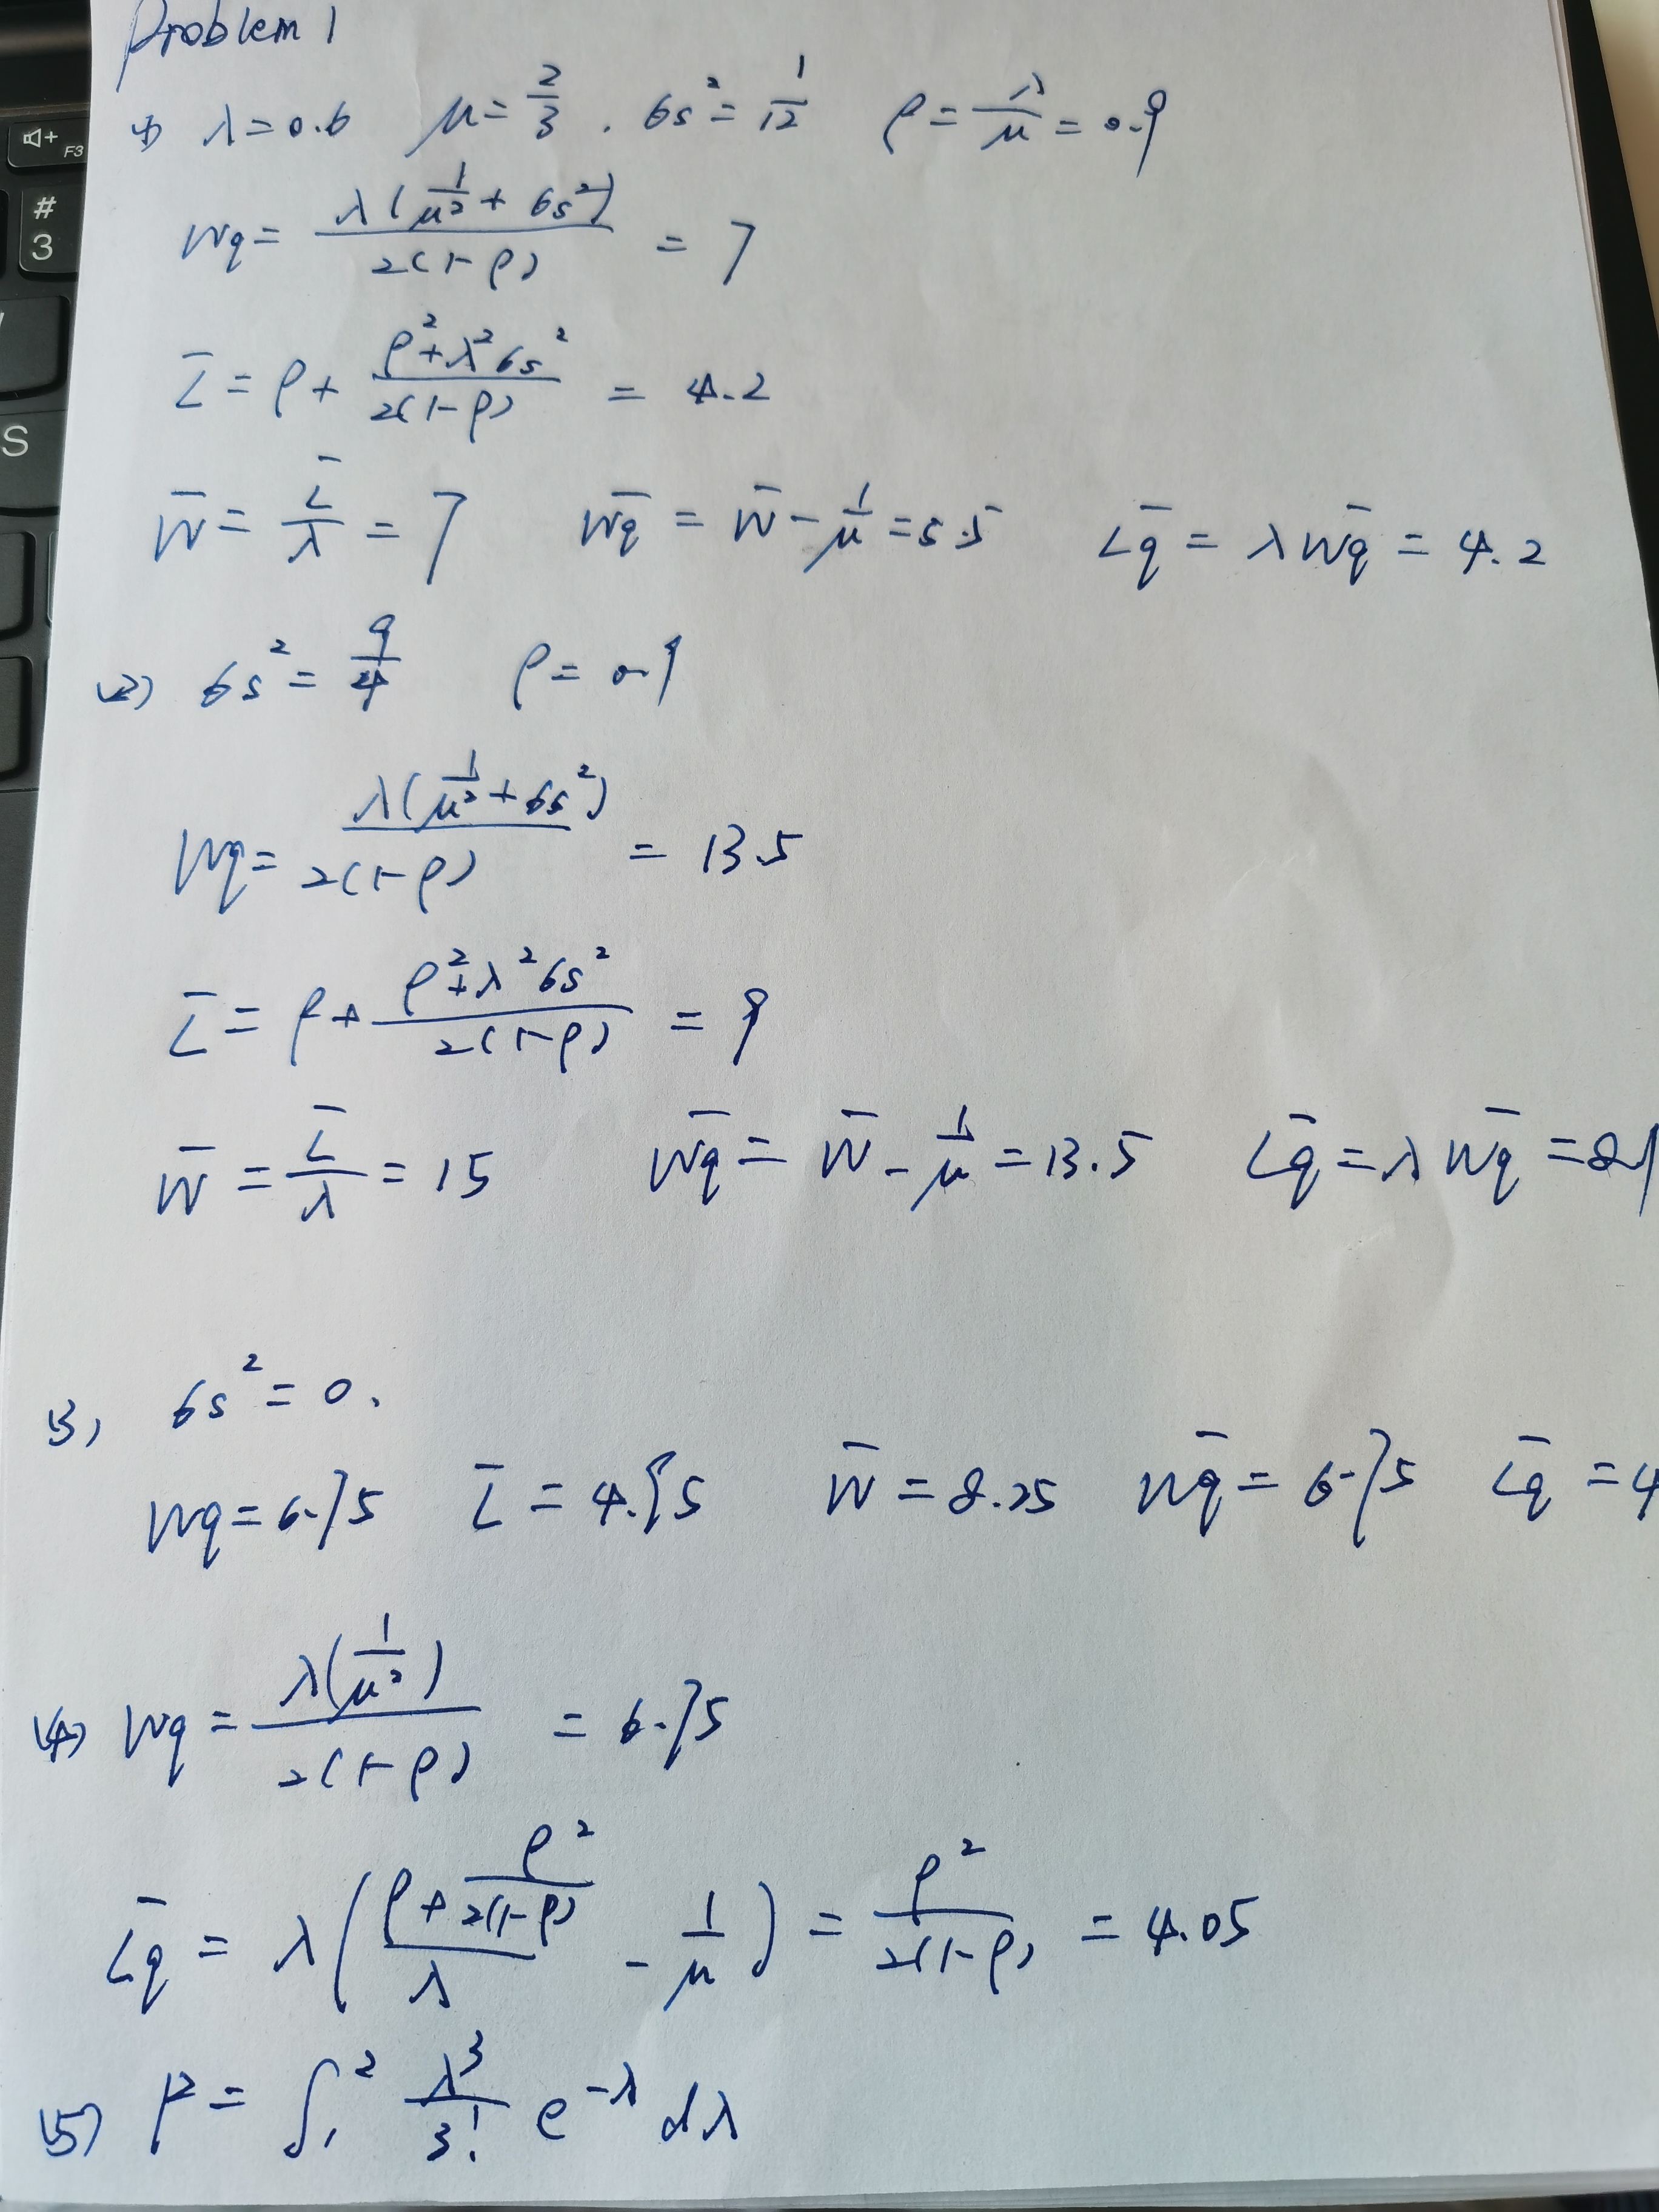 F3
#
3
S
Problem 1
(1) λ=0.6 μ=2/3 . 6s²=1/12 ρ=λ/μ=0.9
Wq= λ(1/μ²+6s²)/2(1-ρ) = 7
L̄=ρ+ (ρ²+λ²6s²)/2(1-ρ) = 4.2
W̄=L̄/λ=7 W̄q=W̄-1/μ=5.5 L̄q=λW̄q=4.2
(2) 6s²=9/4 ρ=0.9
Wq= λ(1/μ²+6s²)/2(1-ρ) = 13.5
L̄=ρ+ (ρ²+λ²6s²)/2(1-ρ) = 9
W̄=L̄/λ=15 W̄q=W̄-1/μ=13.5 L̄q=λW̄q=8.1
(3) 6s²=0.
Wq=6.75 L̄=4.95 W̄=8.25 W̄q=6.75 L̄q=4
(4) Wq= λ(1/μ²)/2(1-ρ) = 6.75
L̄q=λ((ρ+ρ²/2(1-ρ))/λ - 1/μ) = ρ²/2(1-ρ) = 4.05
(5) P=∫₁² λ³/3! e^-λ dλ